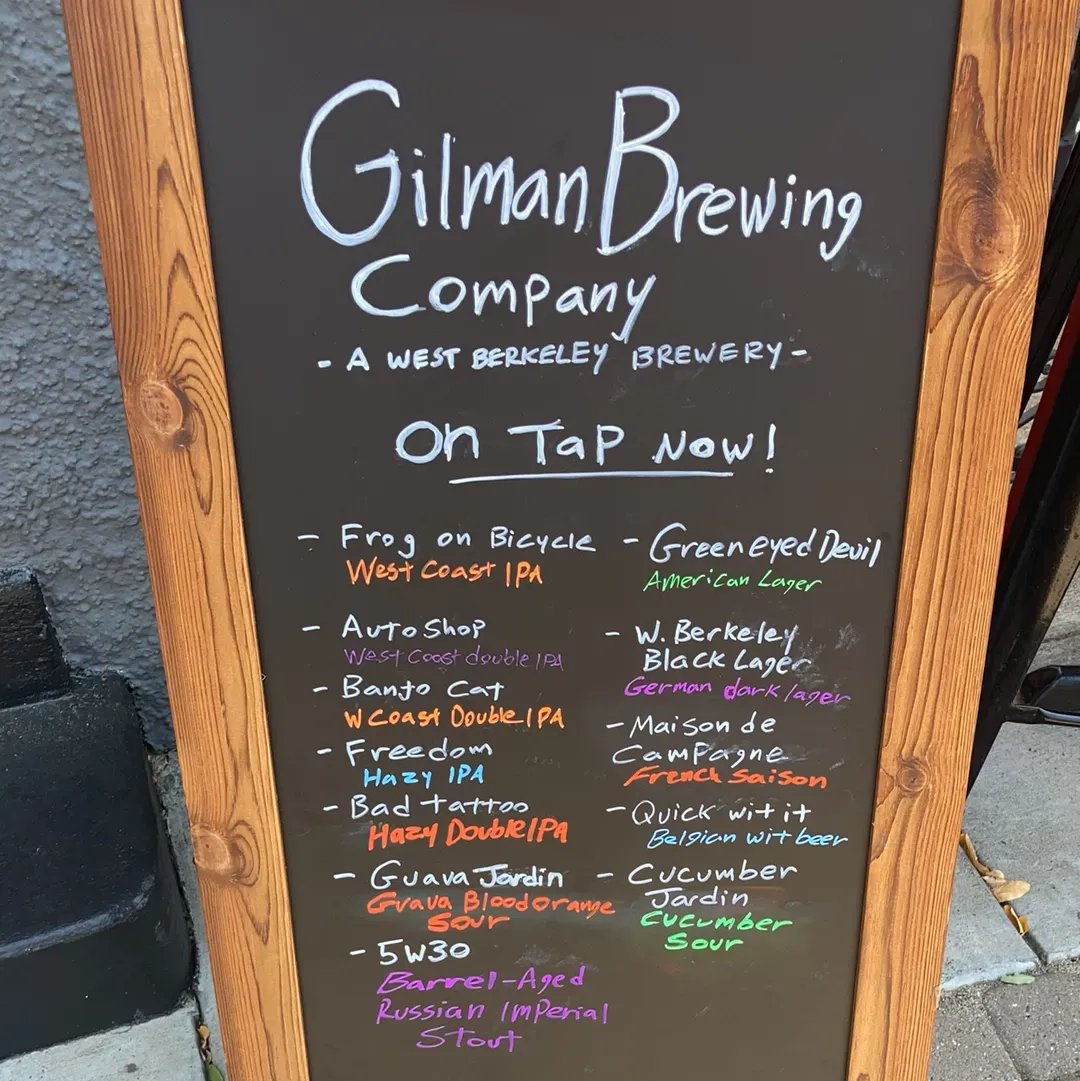 Gilman Brewing
Company
- A WEST BERKELEY BREWERY -
On Tap Now!
- Frog on Bicycle
West Coast IPA
- Auto Shop
West Coast double IPA
- Banjo Cat
W Coast Double IPA
- Freedom
Hazy IPA
- Bad tattoo
Hazy Double IPA
- Guava Jardin
Guava Bloodorange
Sour
- 5W30
Barrel-Aged
Russian Imperial
Stout
- Green eyed Devil
American Lager
- W. Berkeley
Black Lager
German dark lager
- Maison de
Campagne
French Saison
- Quick wit it
Belgian wit beer
- Cucumber
Jardin
Cucumber
Sour